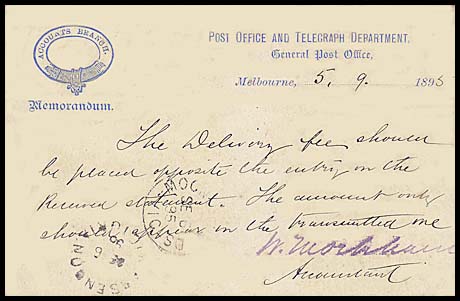 ACCOUNTS BRANCH.
POST OFFICE AND TELEGRAPH DEPARTMENT.
General Post Office,
Melbourne, 5. 9. 1895
Memorandum.
The Delivery fee should
be placed opposite the entry on the
Received statement. The amount only
should appear in the transmitted one
W.
Accountant